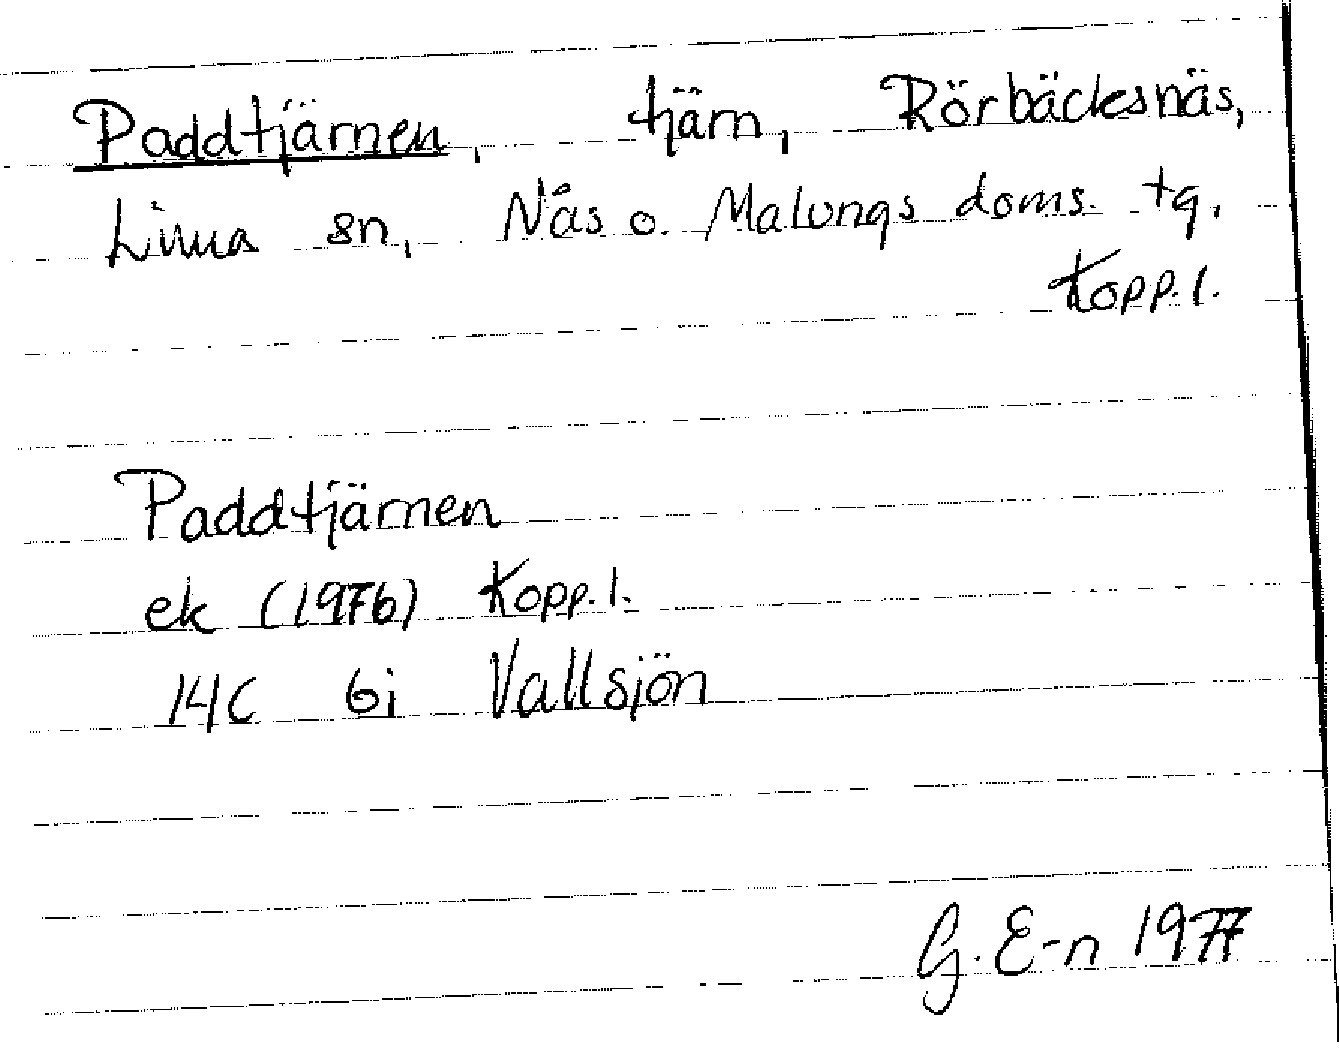 Paddtjärnen, tjärn, Rörbäcksnäs,
Lima sn, Nås o. Malungs doms. tg,
Kopp. l.
Paddtjärnen
ek (1976) Kopp. l.
14C 6i Vallsjön
G. E-n 1977